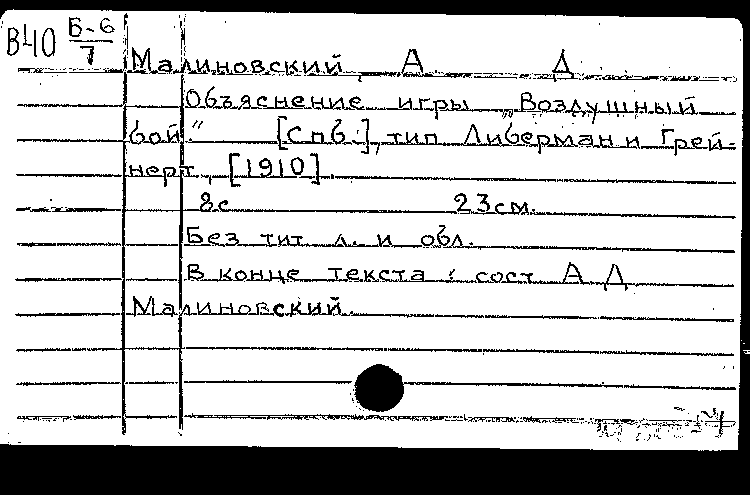 В40 Б-6
7
Малиновский, А Д
Объяснение игры „Воздушный
бой“ [Спб.], тип Либерман и Грей-
нерт, [1910].
8с 23см.
Без тит л. и обл.
В конце текста: сост А Д
Малиновский.